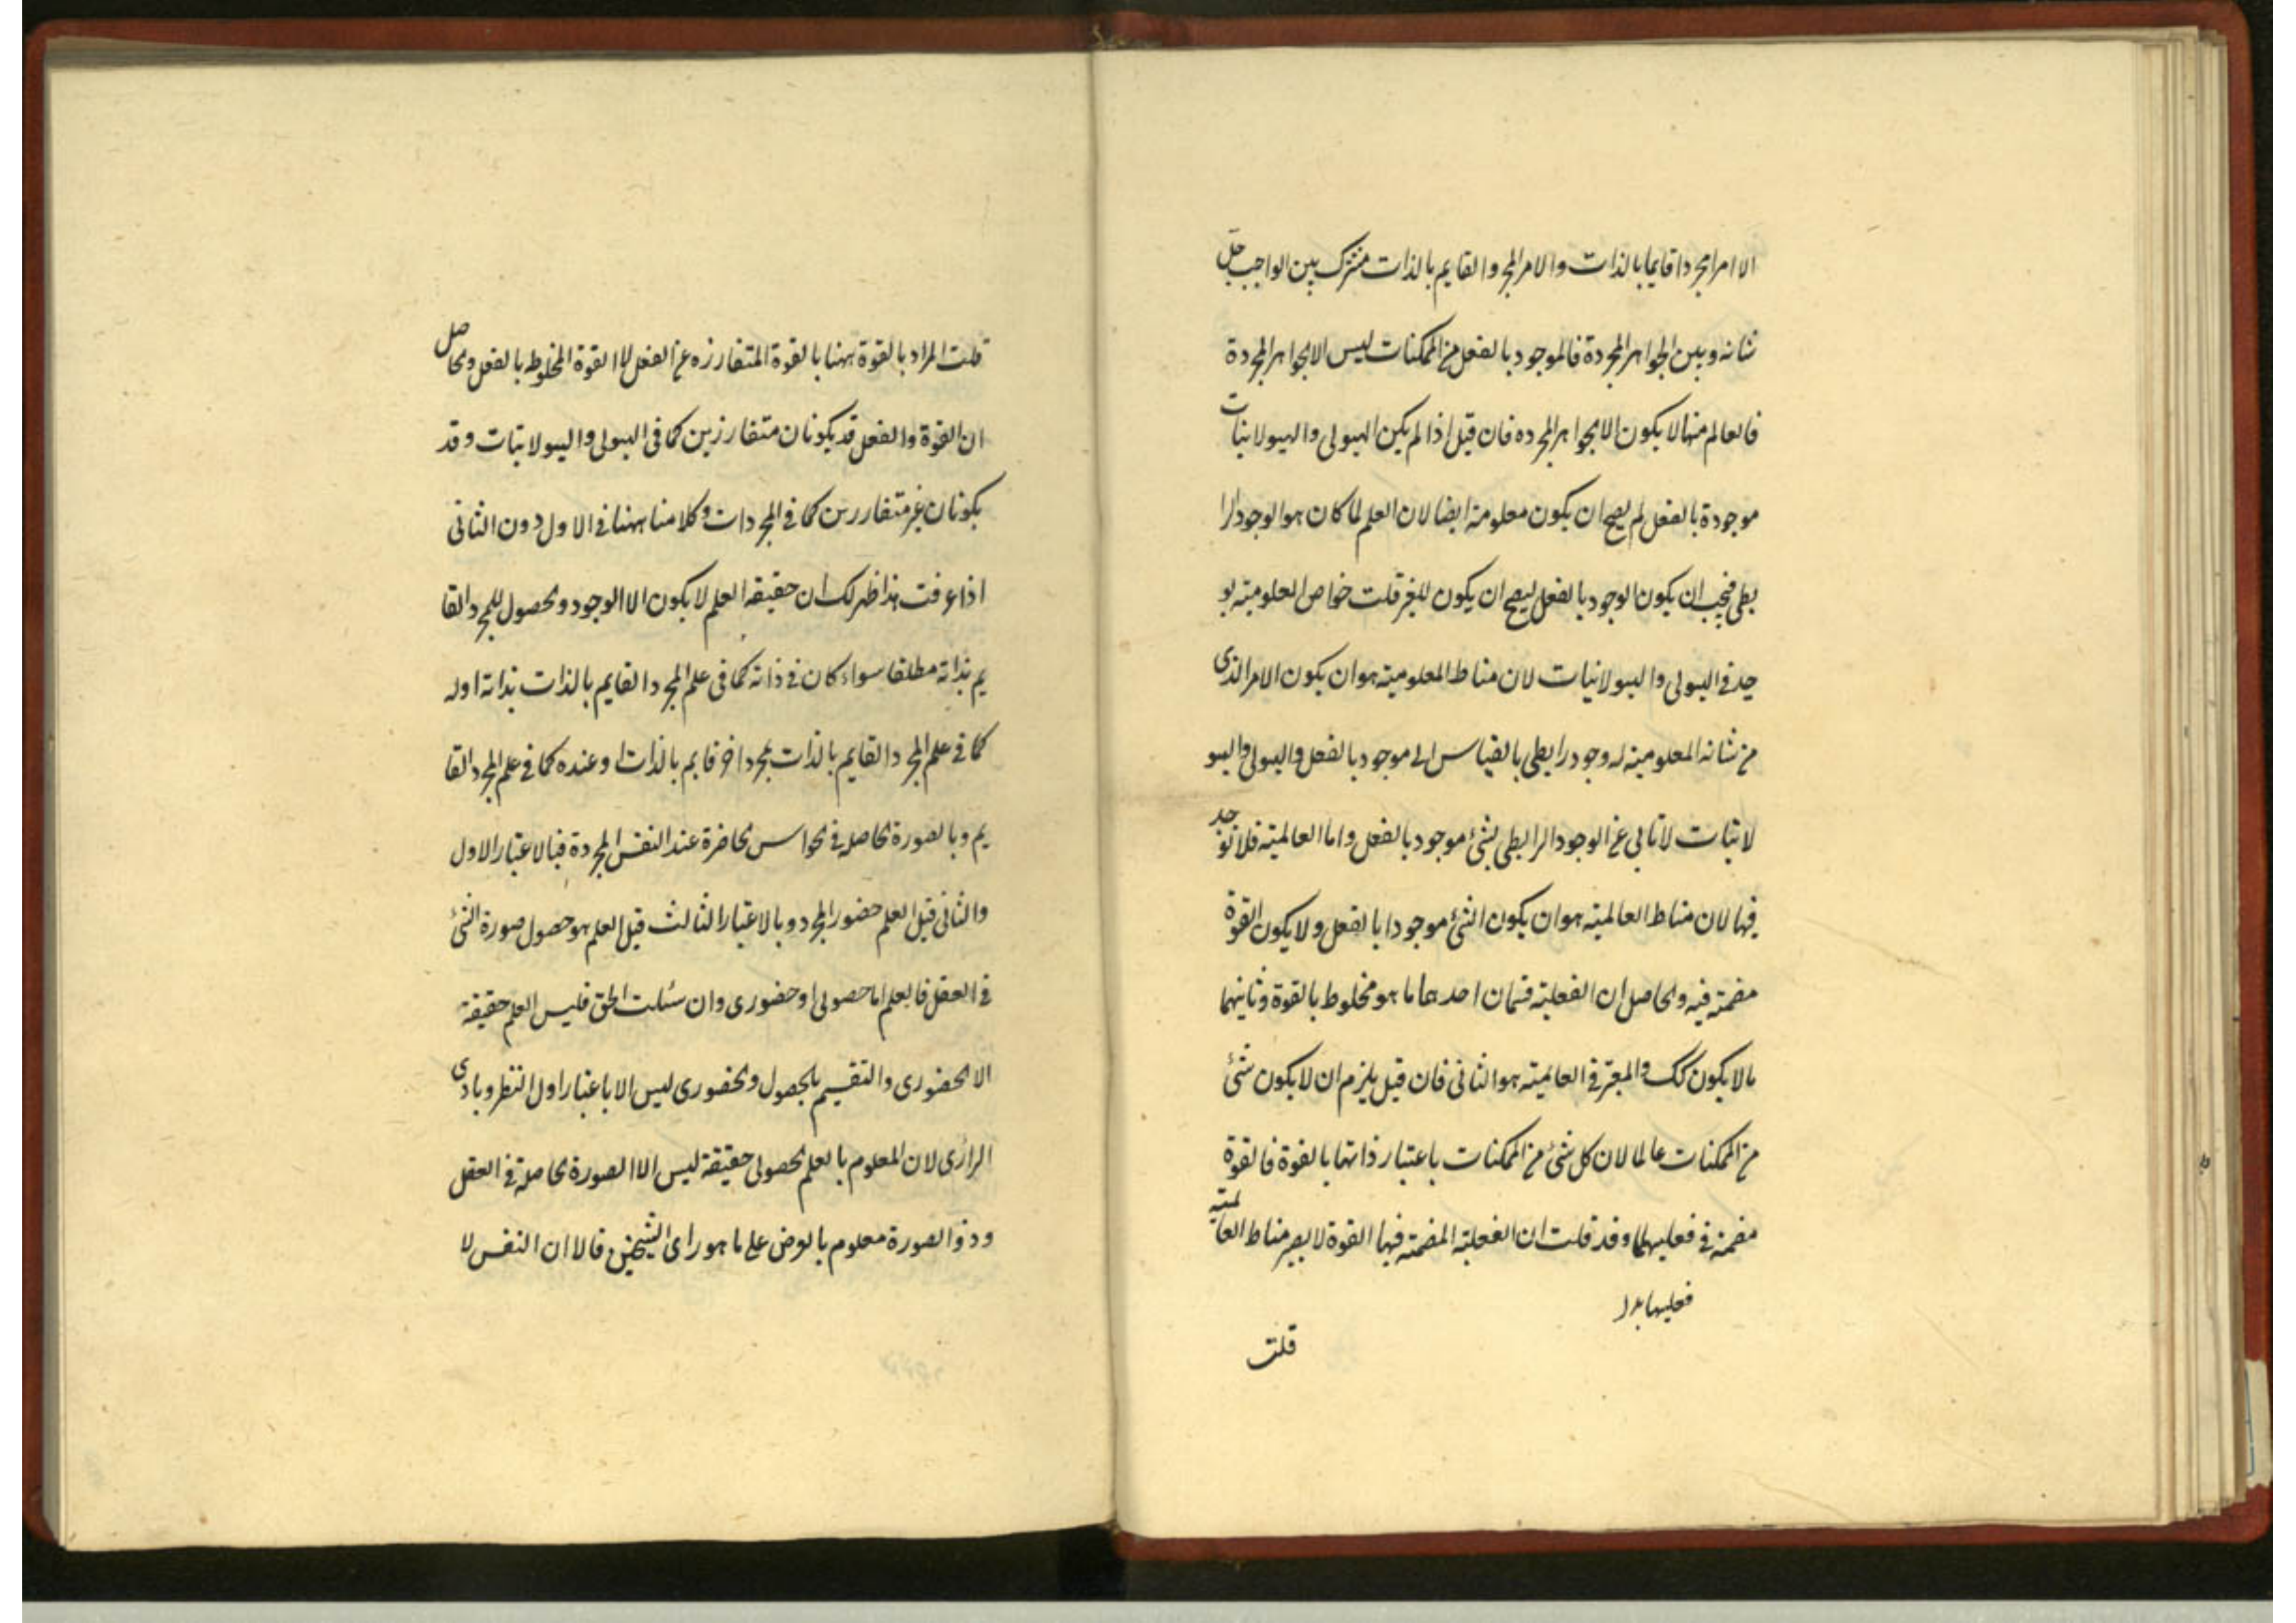 الا امرا مجردا قايما بالذات والامر المجرد القايم بالذات مشترك بين الواجب جل
شانه وبين الجواهر المجردة فالموجود بالفعل من الممكنات ليس الا الجواهر المجردة
فالعالم منها لا يكون الا الجواهر المجرده فان قيل اذا لم يكن الهيولى والهيولانيات
موجودة بالفعل لم يصح ان يكون معلومة ايضا لان العلم لما كان هو الوجود الرا
بطى فيجب ان يكون الوجود بالفعل ليصح ان يكون للغير قلت خواص المعلومية يو
جد فى الهيولى والهيولانيات لان مناط المعلومية هو ان يكون الامر الذى
من شانه المعلومية له وجود رابطى بالقياس الى موجود بالفعل والهيولى والهيو
لانيات لا تابى عن الوجود الرابطى لشئ موجود بالفعل واما العالمية فلا توجد
فيها لان مناط العالمية هو ان يكون الشئ موجودا بالفعل ولا يكون القوة
مضمنة فيه والحاصل ان الفعلية قسمان احدهما ما هو مخلوط بالقوة وثانيهما
ما لا يكون كك والمعتبر فى العالمية هو الثانى فان قيل يلزم ان لا يكون شئ
من الممكنات عالما لان كل شئ من الممكنات باعتبار ذاتها بالقوة فالقوة
مضمنة فى فعليهما وقد قلت ان الفعلية المضمنة فيها القوة لا يصير مناط العالمية
فعليها بدل
قلت
قلت المراد بالقوة ههنا بالقوة المتفارزه عن الفعل لا القوة المخلوط بالفعل والحاصل
ان القوة والفعل قد يكونان متفارزين كما فى الهيولى والهيولانيات وقد
يكونان غير متفاررين كما فى المجردات وكلامنا ههنا فى الاول دون الثانى
اذا عرفت هذا ظهر لك ان حقيقة العلم لا يكون الا الوجود والحصول للمجرد القا
يم بذاته مطلقا سواء كان فى ذاته كما فى علم المجرد القايم بالذات بذاته او له
كما فى علم المجرد القايم بالذات بمجرد اخر قايم بالذات او عنده كما فى علم المجرد القا
يم وبالصورة الحاصله فى الحواس الحاضرة عند النفس المجردة فبالاعتبار الاول
والثانى قيل العلم حضور المجرد وبالاعتبار الثالث قيل العلم هو حصول صورة الشئ
فى العقل فالعلم اما حصولى او حضورى وان سئلت الحق فليس العلم حقيقة
الا الحضورى والتقسيم بالحصول والحضورى ليس الا باعتبار اول النظر وبادى
الرائ لان المعلوم بالعلم الحصولى حقيقة ليس الا الصورة الحاصلة فى العقل
وذو الصورة معلوم بالعرض على ما هو راى الشيخين قالا ان النفس لا